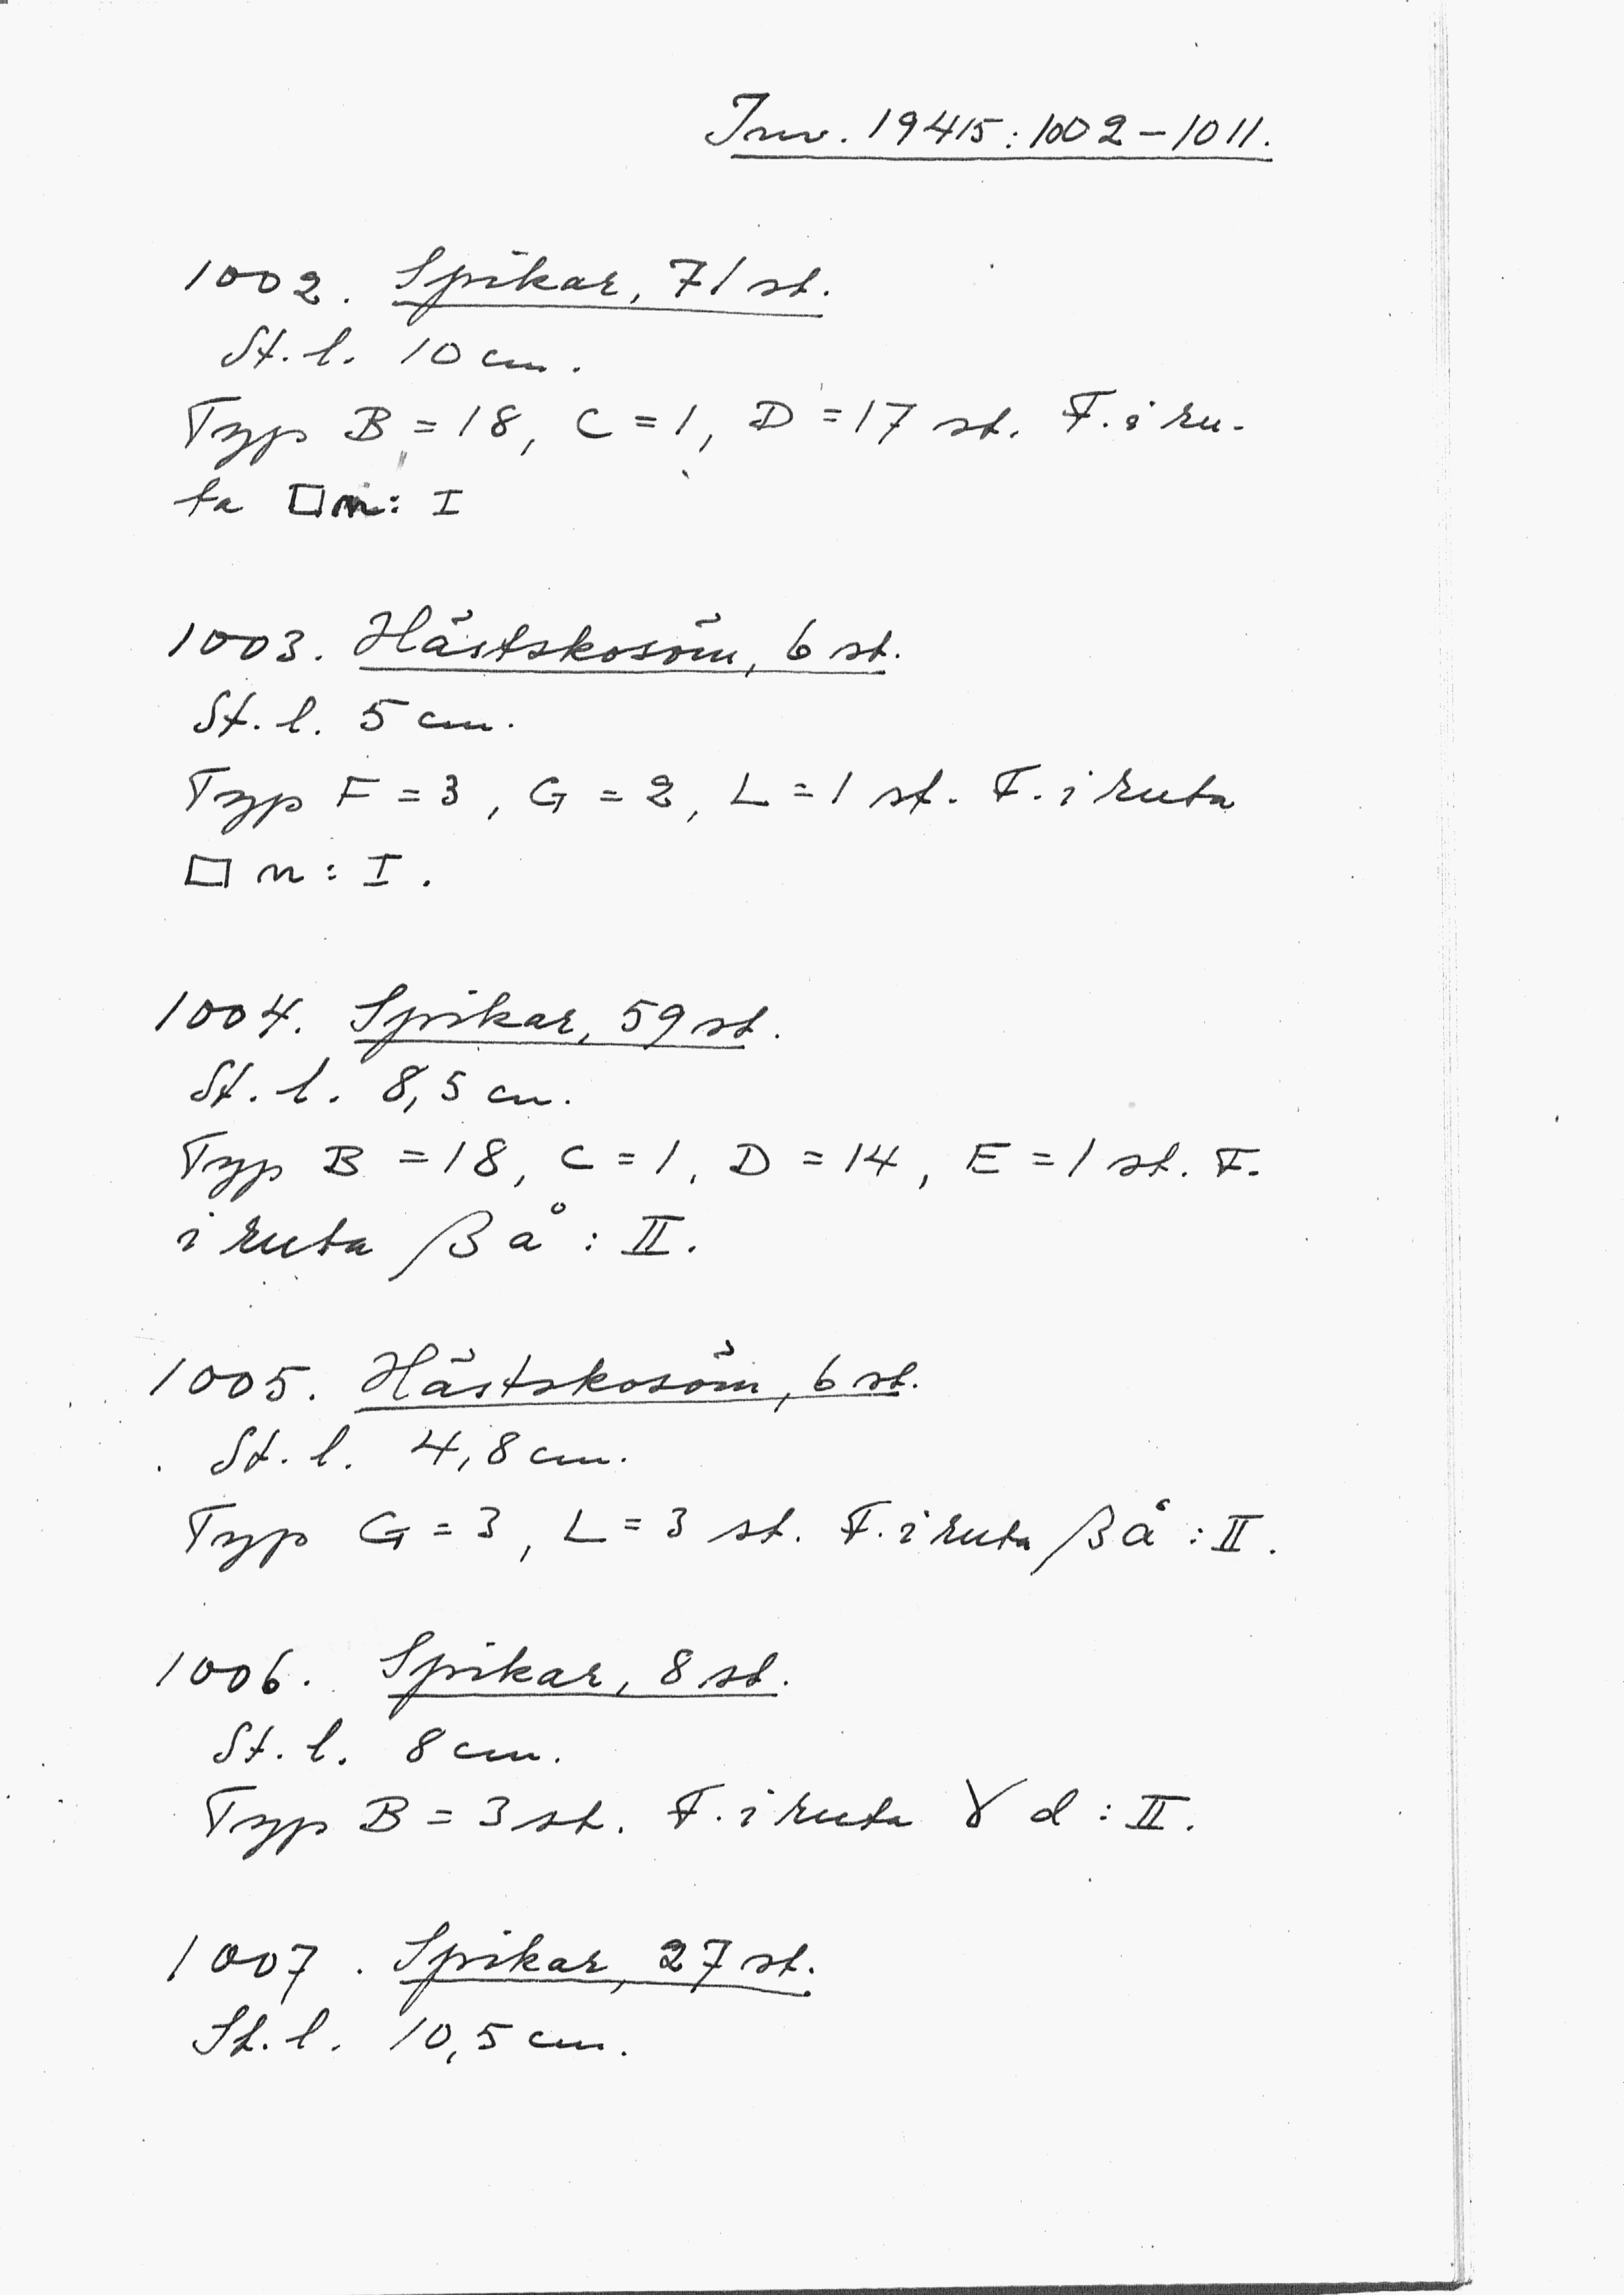 Inv. 19415:1002-1011.
1002. Spikar, 71 st.
St. l. 10 cm.
Typ B = 18, C = 1, D = 17 st. F. i ru-
ta □ n: I
1003. Hästskosöm, 6 st.
St. l. 5 cm.
Typ F = 3, G = 2, L = 1 st. F. i ruta
□ n: I.
1004. Spikar, 59 st.
St. l. 8,5 cm.
Typ B = 18, C = 1, D = 14, E = 1 st. F.
i ruta β å: II.
1005. Hästskosöm, 6 st.
St. l. 4,8 cm.
Typ G = 3, L = 3 st. F. i ruta β å: II.
1006. Spikar, 8 st.
St. l. 8 cm.
Typ B = 3 st. F. i ruta γ d: II.
1007. Spikar, 27 st.
St. l. 10,5 cm.